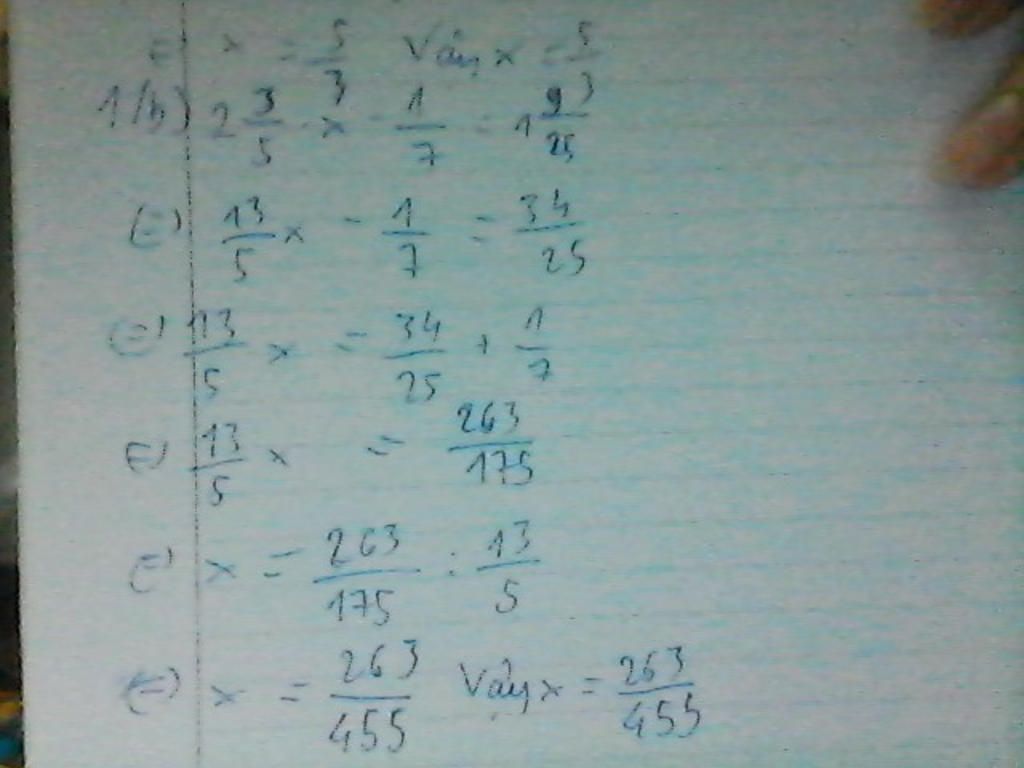 ⇔ x = 5/3 Vậy x = 5/3
1/b) 2 3/5 . x - 1/7 = 1 9/25
⇔ 13/5 x - 1/7 = 34/25
⇔ 13/5 x = 34/25 + 1/7
⇔ 13/5 x = 263/175
⇔ x = 263/175 : 13/5
⇔ x = 263/455 Vậy x = 263/455